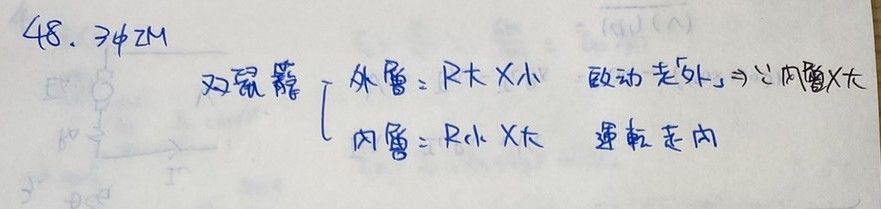 48. 3φIM
双鼠籠 外層：R大 X小 啟动走「外」⇒∵內層X大
內層：R小 X大 運転走內